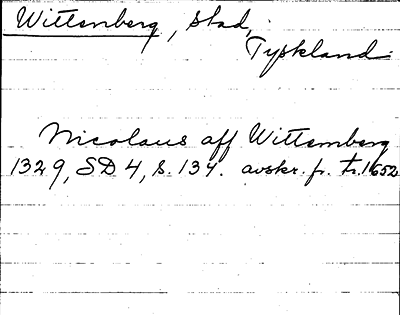 Wittenberg, stad,
Tyskland
Nicolaus aff Wittemberg
1329, SD 4, s. 134. avskr. fr. tr. 1652